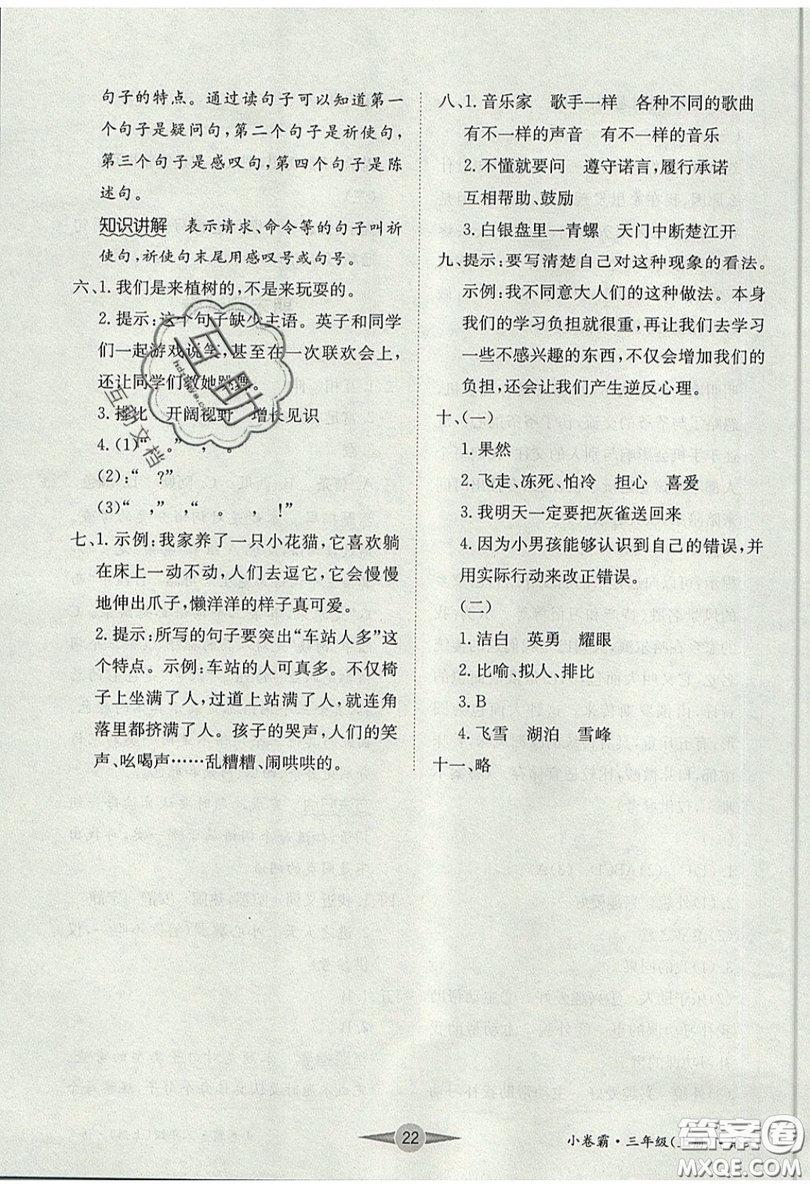 句子的特点。通过读句子可以知道第一
个句子是疑问句,第二个句子是祈使句,
第三个句子是感叹句,第四个句子是陈
述句。
知识讲解 表示请求、命令等的句子叫祈
使句,祈使句末尾用感叹号或句号。
六、1. 我们是来植树的,不是来玩耍的。
2. 提示:这个句子缺少主语。英子和同学
们一起游戏谈笑,甚至在一次联欢会上,
还让同学们教她跳舞。
3. 播北 开阔视野 增长见识
4. (1)“ 。” , 。
(2):“ ?”
(3)“ , ,”“ 。 , !”
七、1. 示例:我家养了一只小花猫,它喜欢躺
在床上一动不动,人们去逗它,它会慢慢
地伸出爪子,懒洋洋的样子真可爱。
2. 提示:所写的句子要突出“车站人多”这
个特点。示例:车站的人可真多。不仅椅
子上坐满了人,过道上站满了人,就连角
落里都挤满了人。孩子的哭声,人们的笑
声、吆喝声……乱糟糟、闹哄哄的。
八、1. 音乐家 歌手一样 各种不同的歌曲
有不一样的声音 有不一样的音乐
2. 不懂就要问 遵守诺言,履行承诺
互相帮助、鼓励
3. 白银盘里一青螺 天门中断楚江开
九、提示:要写清楚自己对这种现象的看法。
示例:我不同意大人们的这种做法。本身
我们的学习负担就重,再让我们去学习
一些不感兴趣的东西,不仅会增加我们的
负担,还会让我们产生逆反心理。
十、(一)
1. 果然
2. 飞走、冻死、怕冷 担心 喜爱
3. 我明天一定要把灰雀送回来
4. 因为小男孩能够认识到自己的错误,并
用实际行动来改正错误。
(二)
1. 洁白 英勇 耀眼
2. 比喻、拟人、排比
3. B
4. 飞雪 湖泊 雪峰
十一、略
互助
互助文档
22
小卷霸·三年级(
答案圈
MXQE.COM